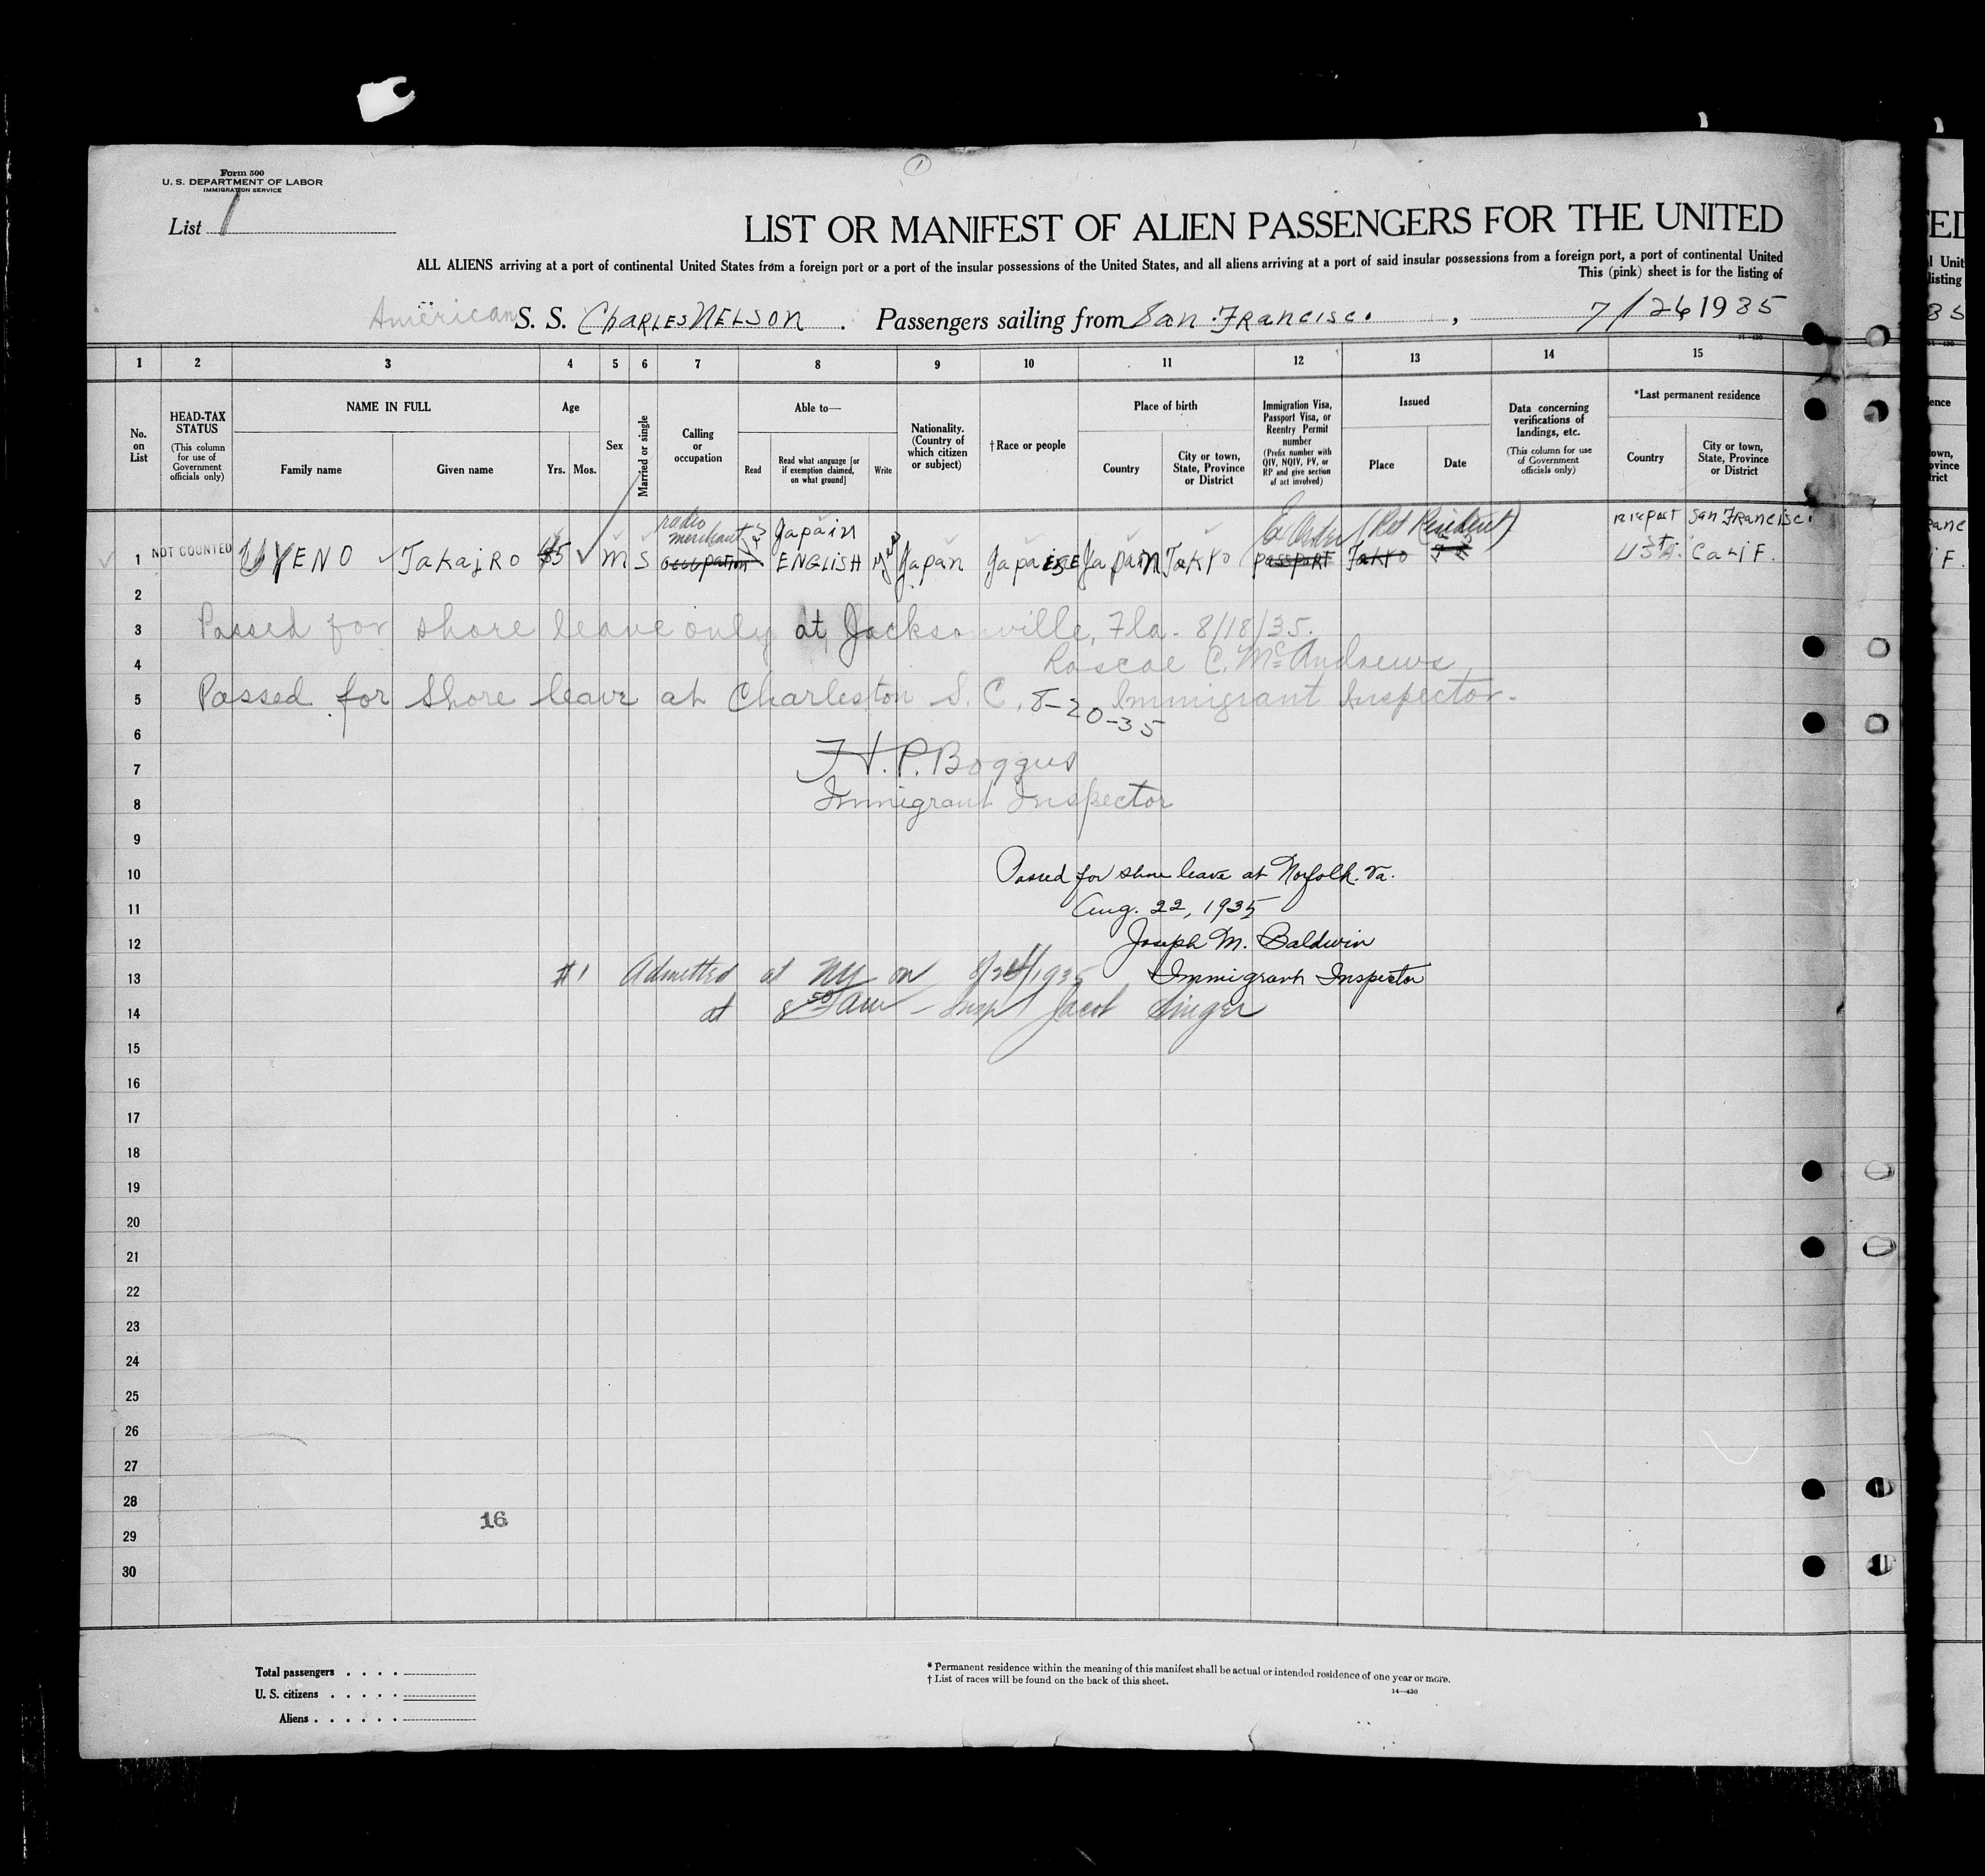 ①
Form 500
U. S. DEPARTMENT OF LABOR
IMMIGRATION SERVICE
List 1
LIST OR MANIFEST OF ALIEN PASSENGERS FOR THE UNITED
ALL ALIENS arriving at a port of continental United States from a foreign port or a port of the insular possessions of the United States, and all aliens arriving at a port of said insular possessions from a foreign port, a port of continental United
This (pink) sheet is for the listing of
American S. S. CHARLES NELSON . Passengers sailing from San Francisco , 7/26 1935
1 2 3 4 5 6 7 8 9 10 11 12 13 14 15
No. on List
HEAD-TAX STATUS
(This column for use of Government officials only)
NAME IN FULL
Family name
Given name
Age
Yrs. Mos.
Sex
Married or single
Calling or occupation
Able to—
Read
Read what language [or if exemption claimed, on what ground]
Write
Nationality. (Country of which citizen or subject)
†Race or people
Place of birth
Country
City or town, State, Province or District
Immigration Visa, Passport Visa, or Reentry Permit number
(Prefix number with QIV, NQIV, PV, or RP and give section of act involved)
Issued
Place
Date
Data concerning verifications of landings, etc.
(This column for use of Government officials only)
*Last permanent residence
Country
City or town, State, Province or District
radio Japain (Ret Resident) San Francisc.
merchant
1 NOT COUNTED UYENO TakajRO 45 M S occupation ENGLISH Japan JapaiESE Japain Tokyo passport Tokyo USA. CALIF.
2
3 Passed for shore leave only at Jacksonville, Fla. 8/18/35.
4 Roscoe C. McAndrews,
5 Passed for Shore leave at Charleston S. C. 8-20-35 Immigrant Inspector.
6
7 H. P. Boggus
8 Immigrant Inspector
9
10 Passed for shore leave at Norfolk. Va.
11 Aug. 22, 1935
12 Joseph M. Baldwin
13 #1 Admitted at NY on 8/24/1935 Immigrant Inspector
14 at 8 50 AM - Insp Jacob Singer
15
16
17
18
19
20
21
22
23
24
25
26
27
28
16
29
30
Total passengers . . . .
U. S. citizens . . . . .
Aliens . . . . . .
* Permanent residence within the meaning of this manifest shall be actual or intended residence of one year or more.
† List of races will be found on the back of this sheet.
14—430